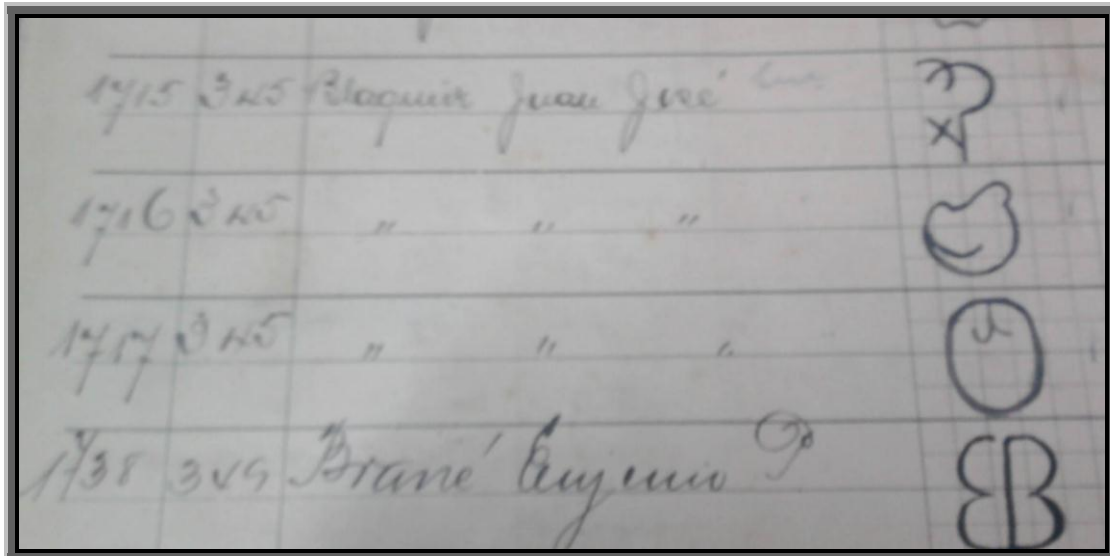 1715 345 Blaquier Juan José
1716 345 " " "
1717 345 " " "
1738 349 Brané Eugenio P